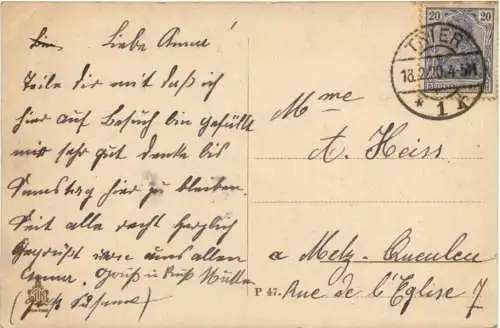 Liebe Anna!
Teile dir mit daß ich
hier auf Besuch bin gefällt
mir sehr gut denke bis
Samstag hier zu bleiben.
Seit alle recht herzlich
Gegrüßt von uns allen
Anna. Gruß u Kuß Mutter
20 20
TRIER
18.2.20. 4-5N
* 1 r
Mme
A. Heiss
a Metz-Queuleu
P 47. Rue de l'Eglise 7